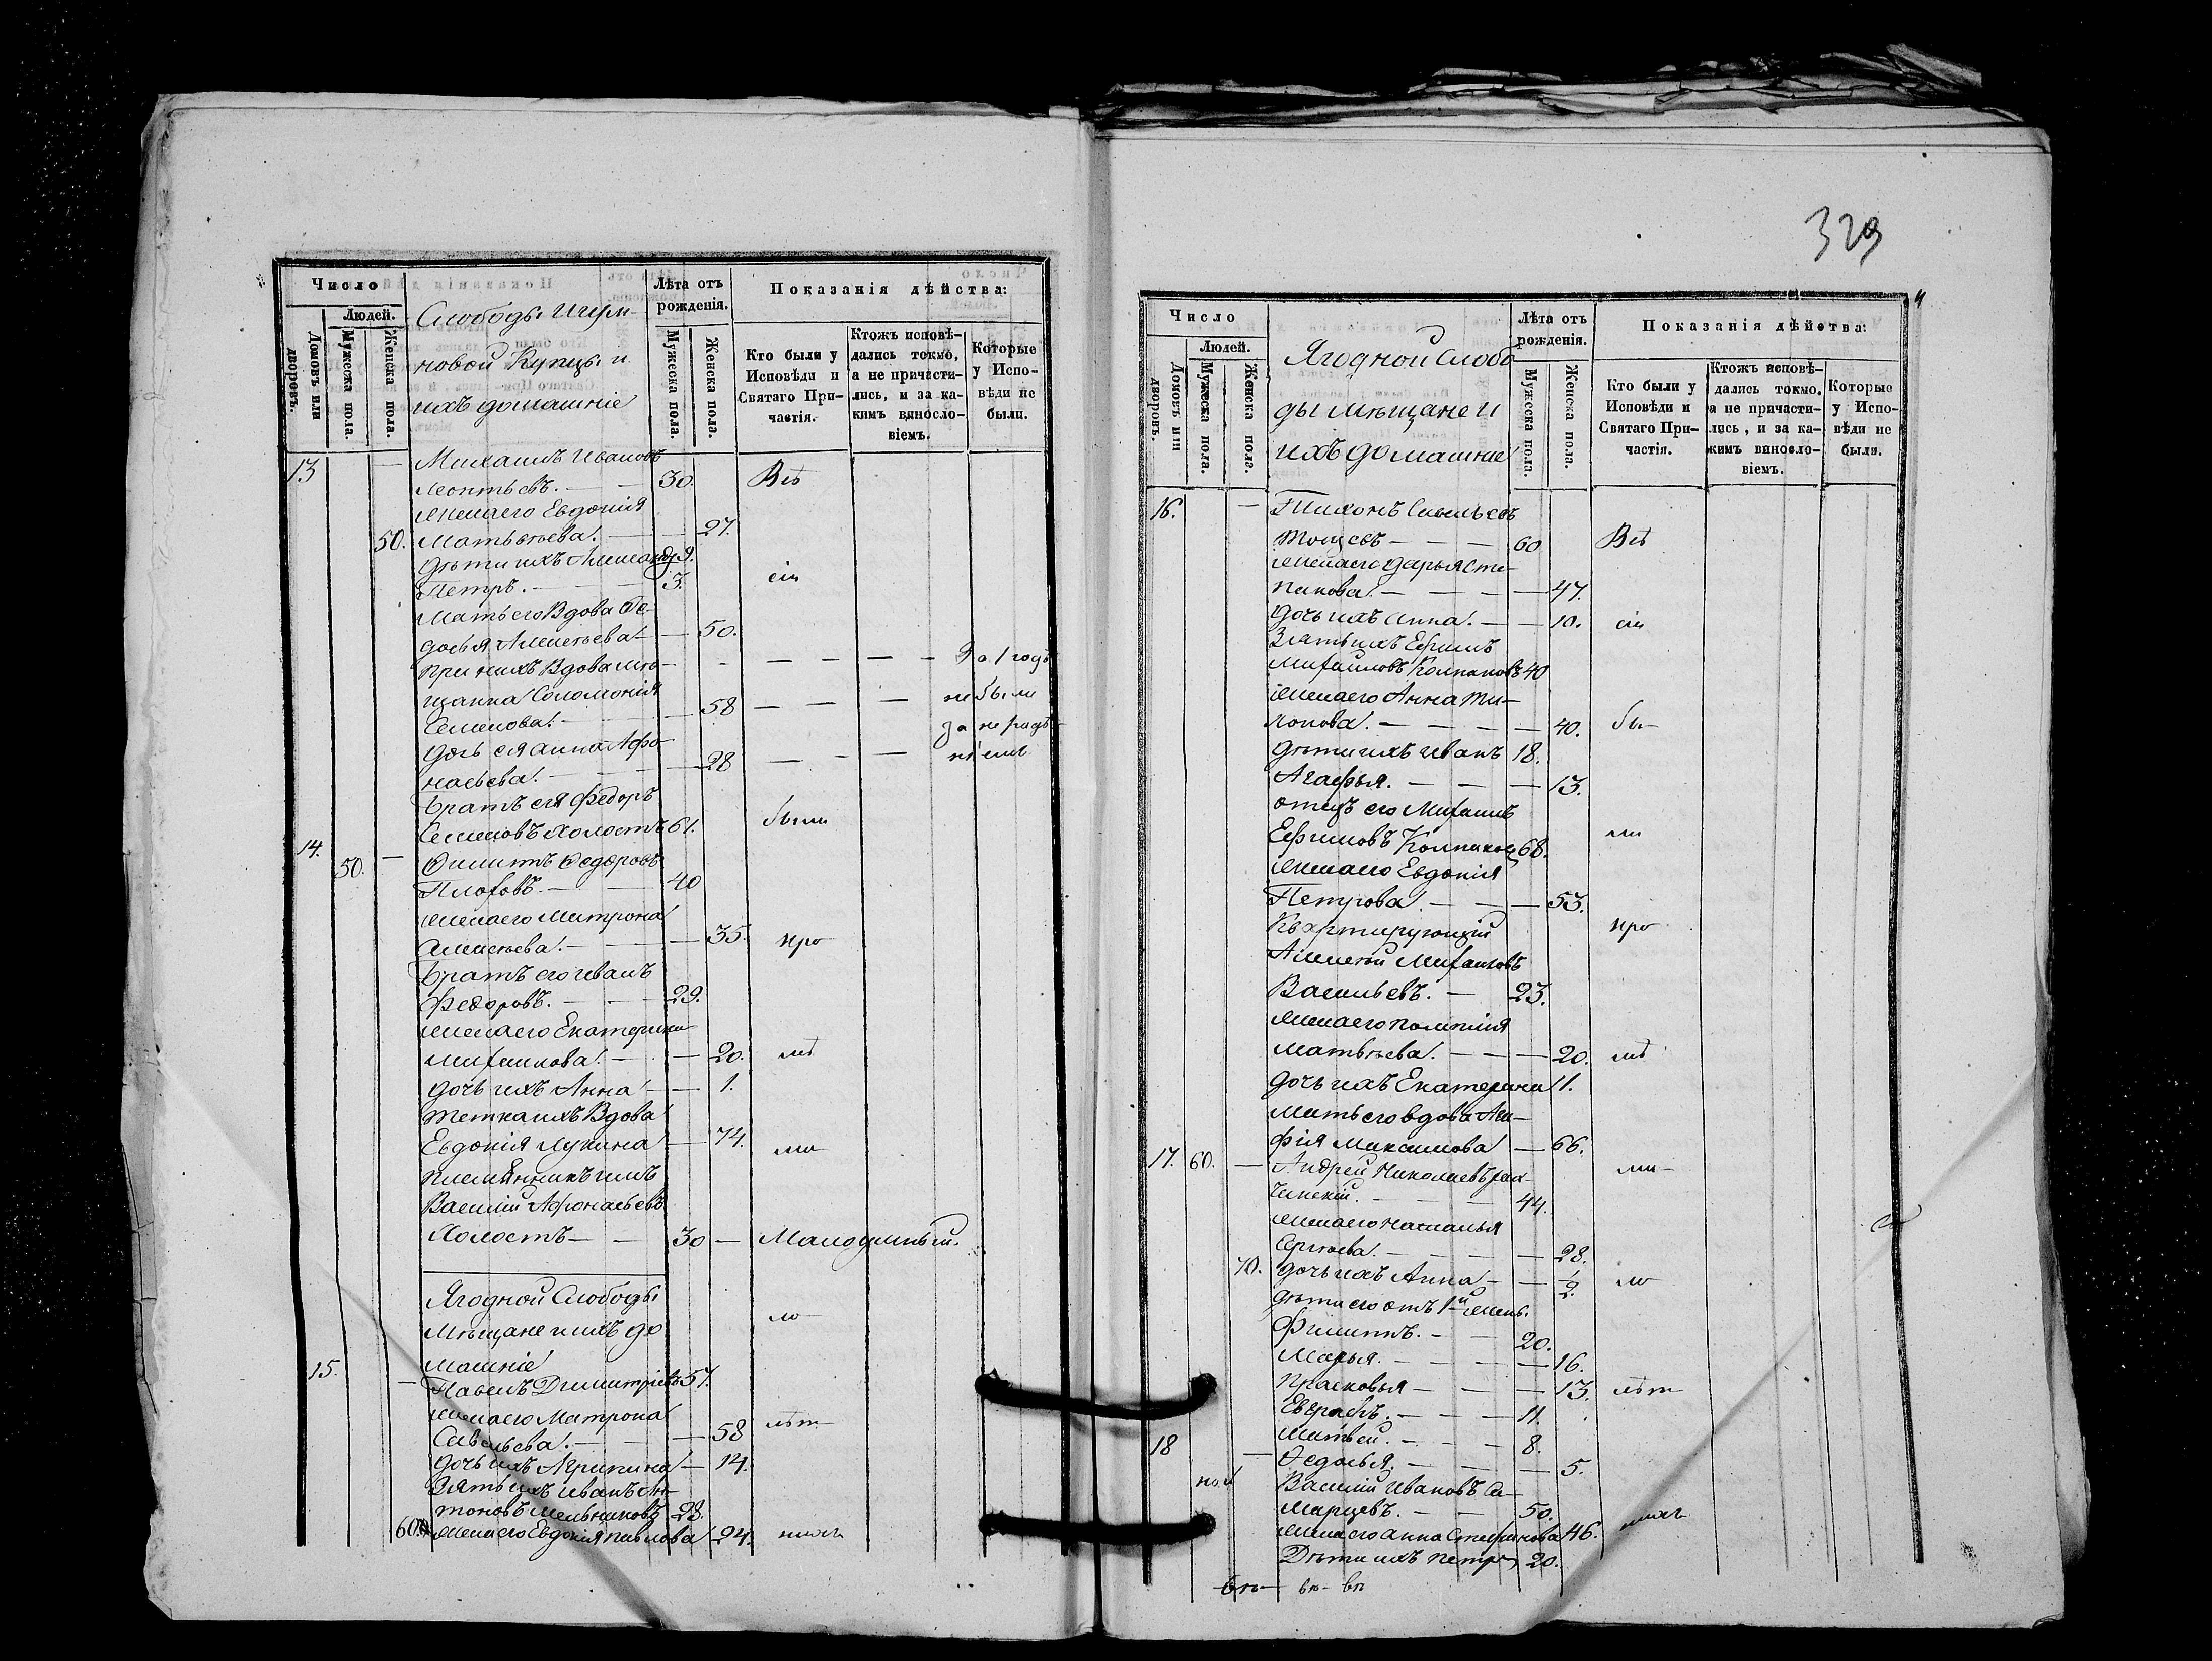 Число
Людей.
Домовъ или дворовъ.
Мужеска пола.
Женска пола.
Слободы Игум-
новой Купцы и
ихъ домашніе
Лѣта отъ рожденія.
Мужеска пола.
Женска пола.
Показанія дѣйства:
Кто были у Исповѣди и Святаго При-частія.
Ктожъ исповѣ-дались токмо, а не причасти-лись, и за ка-кимъ винослo-віемъ.
Которые у Испо-вѣди не были.
13 — Михаилъ Ивановъ
Леонтьевъ. — — 30. Всѣ
Жена его Евдокія
50. Матвѣева. — — 27.
Дѣти ихъ Александръ 9.
Петръ. — — 3. сіи
Мать его Вдова Фе-
досья Алексѣева — — 50.
При нихъ Вдова мѣ- — — — — За 1 годъ
щанка Соломонія не были
Семенова. — — 58 — — — за нерадѣ-
Дочь ея Анна Афо- ніемъ
насьева. — — 28 — — —
Братъ ея Федоръ
Семеновъ холостъ 61. были
14. 50. — Филиппъ Федоровъ
Плоховъ. — — 40
Жена его Матрона
Алексѣева. — — 35. при
Братъ его Иванъ
Федоровъ. — — 29.
Жена его Екатерина
Михаилова. — — 20.
Дочь ихъ Анна — — 1.
Тетка ихъ Вдова
Евдокія Лукина — 74.
Племянникъ имъ
Василій Афонасьевъ
Холостъ — — 30 —
Ягодной Слободы
Мѣщане и ихъ до
машніе
15. — Павелъ Димитріевъ 57.
Жена его Матрона
Савельева. — — 58
Дочь ихъ Агрипина — 14.
Зять ихъ Иванъ Ан-
тоновъ Мельниковъ 28.
60. Жена его Евдокія Павлова 24.
329
Число
Людей.
Домовъ или дворовъ.
Мужеска пола.
Женска пола.
Ягодной Слобо
ды Мѣщане и
ихъ домашніе
Лѣта отъ рожденія.
Мужеска пола.
Женска пола.
Показанія дѣйства:
Кто были у Исповѣди и Святаго При-частія.
Ктожъ исповѣ-дались токмо, а не причасти-лись, и за ка-кимъ винослo-віемъ.
Которые у Испо-вѣди не были.
16. — Тихонъ Савельевъ
— — — 60 Всѣ
Жена его Дарья Сте-
панова. — — — 47.
Дочь ихъ Анна. — — 10. сіи
Зять ихъ Ефимъ
Михайловъ Колпаковъ 40
Жена его Анна Ти-
хонова. — — — 40. бы-
Дѣти ихъ Иванъ 18.
Агафья. — — — 13.
Отецъ его Михаилъ
Ефимовъ Колпаковъ 68. ли
Жена его Евдокія
Петрова. — — — 53.
Квартирующій при
Алексѣй Михаиловъ
Васильевъ. — 23.
Жена его
Матвѣева. — — — 20.
Дочь ихъ Екатерина 1.
Мать его вдова Ага-
фія Максимова — 66.
17. 60. — Андрей Николаевъ
— — 44.
Жена его Наталья
Сергѣева. — — — 28.
70. Дочь ихъ Анна — — 1/2
Дѣти его отъ 1й жены.
Филиппъ. — — 20.
Марья. — — — 16.
Прасковья — — — 13.
Евграфъ. — — — 11.
Матвѣй. — — 8.
18 — Федосья. — — — 5.
Василій Ивановъ Са-
марцевъ. — — 50.
Жена его Анна Стефанова 46.
Дѣти ихъ Петръ, 20.